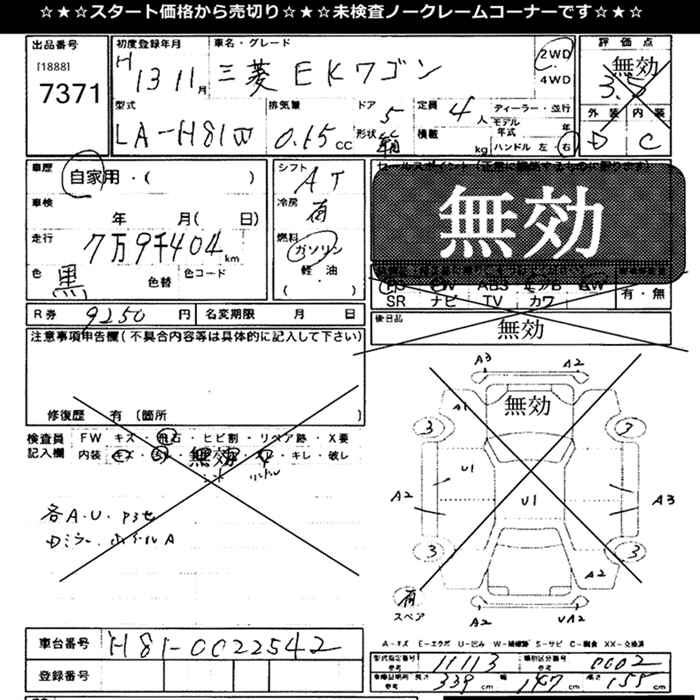 ☆★☆★スタート価格から売切り☆★☆★未検査ノークレームコーナーです☆★☆
出品番号
[1888]
7371
初度登録年月
H 13 11月
車名・グレード
三菱 EKワゴン
2WD
4WD
評価点
無効
3.5
外装 内装
D C
型式
LA-H81W
排気量
cc
ドア 5
形状
定員 4人
積載 kg
ディーラー・並行
モデル年式 年
ハンドル 左 右
車歴
自家用・( )
車検
年 月( 日)
走行
7万9千404km
色 黒
色替
色コード
シフト
AT
冷房
有
燃料
ガソリン
軽油
( )
無効
PS PW ABS エアB AW
SR ナビ TV カワ
有・無
後日品
無効
R券 9250円
名変期限 月 日
注意事項申告欄(不具合内容等は具体的に記入して下さい)
修復歴 有 (箇所 )
検査員記入欄
FW キズ・飛石・ヒビ割・リペア跡・X要
内装 キズ・ 無効 ・キレ・破レ
各A.U.
Dミラー、 A
A3 A2
A1
無効
3 3
U1
A2 U1 A3
3 3
A2
有
スペア
A2 UA2
A-キズ E-エクボ U-凹み W-補修跡 S-サビ C-腐食 XX-交換済
車台番号 H81-0022542
登録番号
型式指定番号 参考 11113
類別区分番号 参考 0002
長さ 339cm 幅 147cm 高さ 155cm